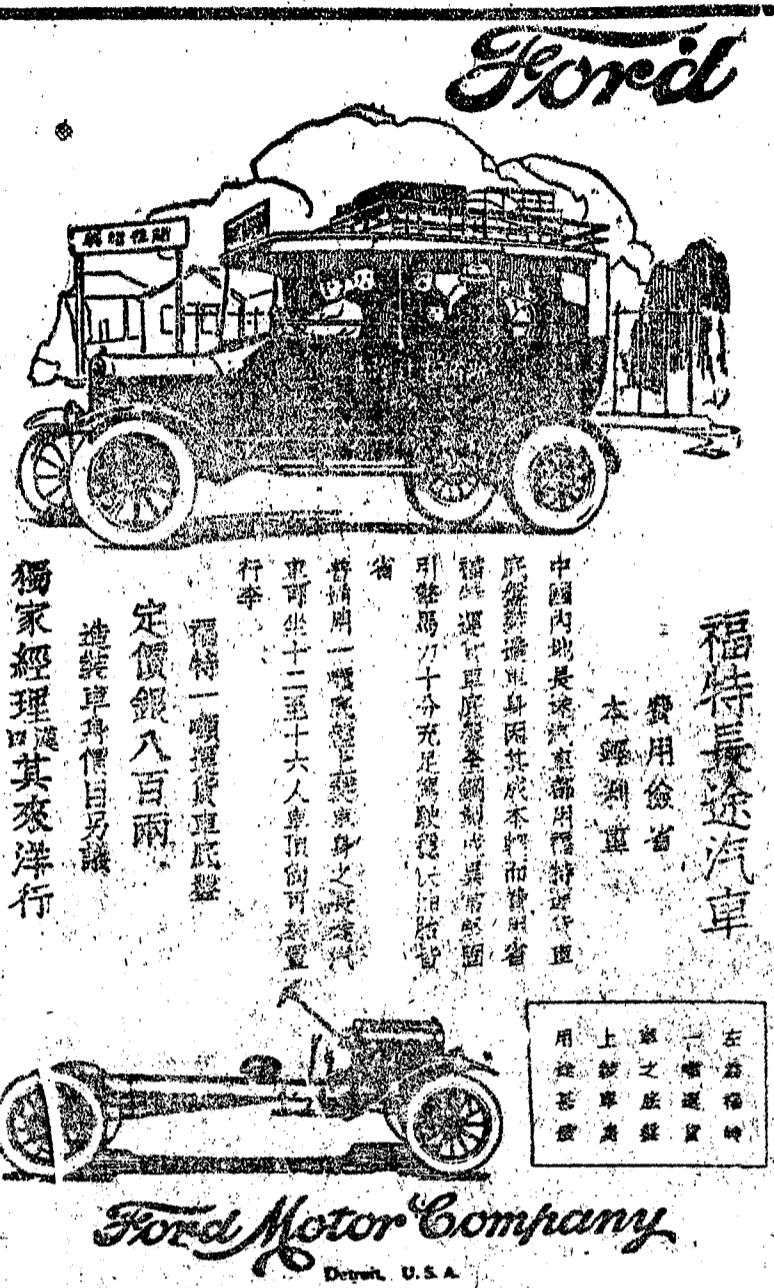 Ford
福特長途汽車
費用儉省
本輕利重
中國內地長途汽車都用福特運貨車
底盤裝造車身因其成本輕而費用省
福特運貨車底盤全鋼製成異常堅固
引擎馬力十分充足駕駛穩快油胎皆
省
普通用一噸底盤上裝車身之長途汽
車可坐十二至十六人車頂尚可裝置
行李
福特一噸運貨車底盤
定價銀八百兩
造裝車身價目另議
獨家經理 其來洋行
左為福特
一噸運貨
車之底盤
上裝車身
用途甚廣
Ford Motor Company
Detroit, U.S.A.